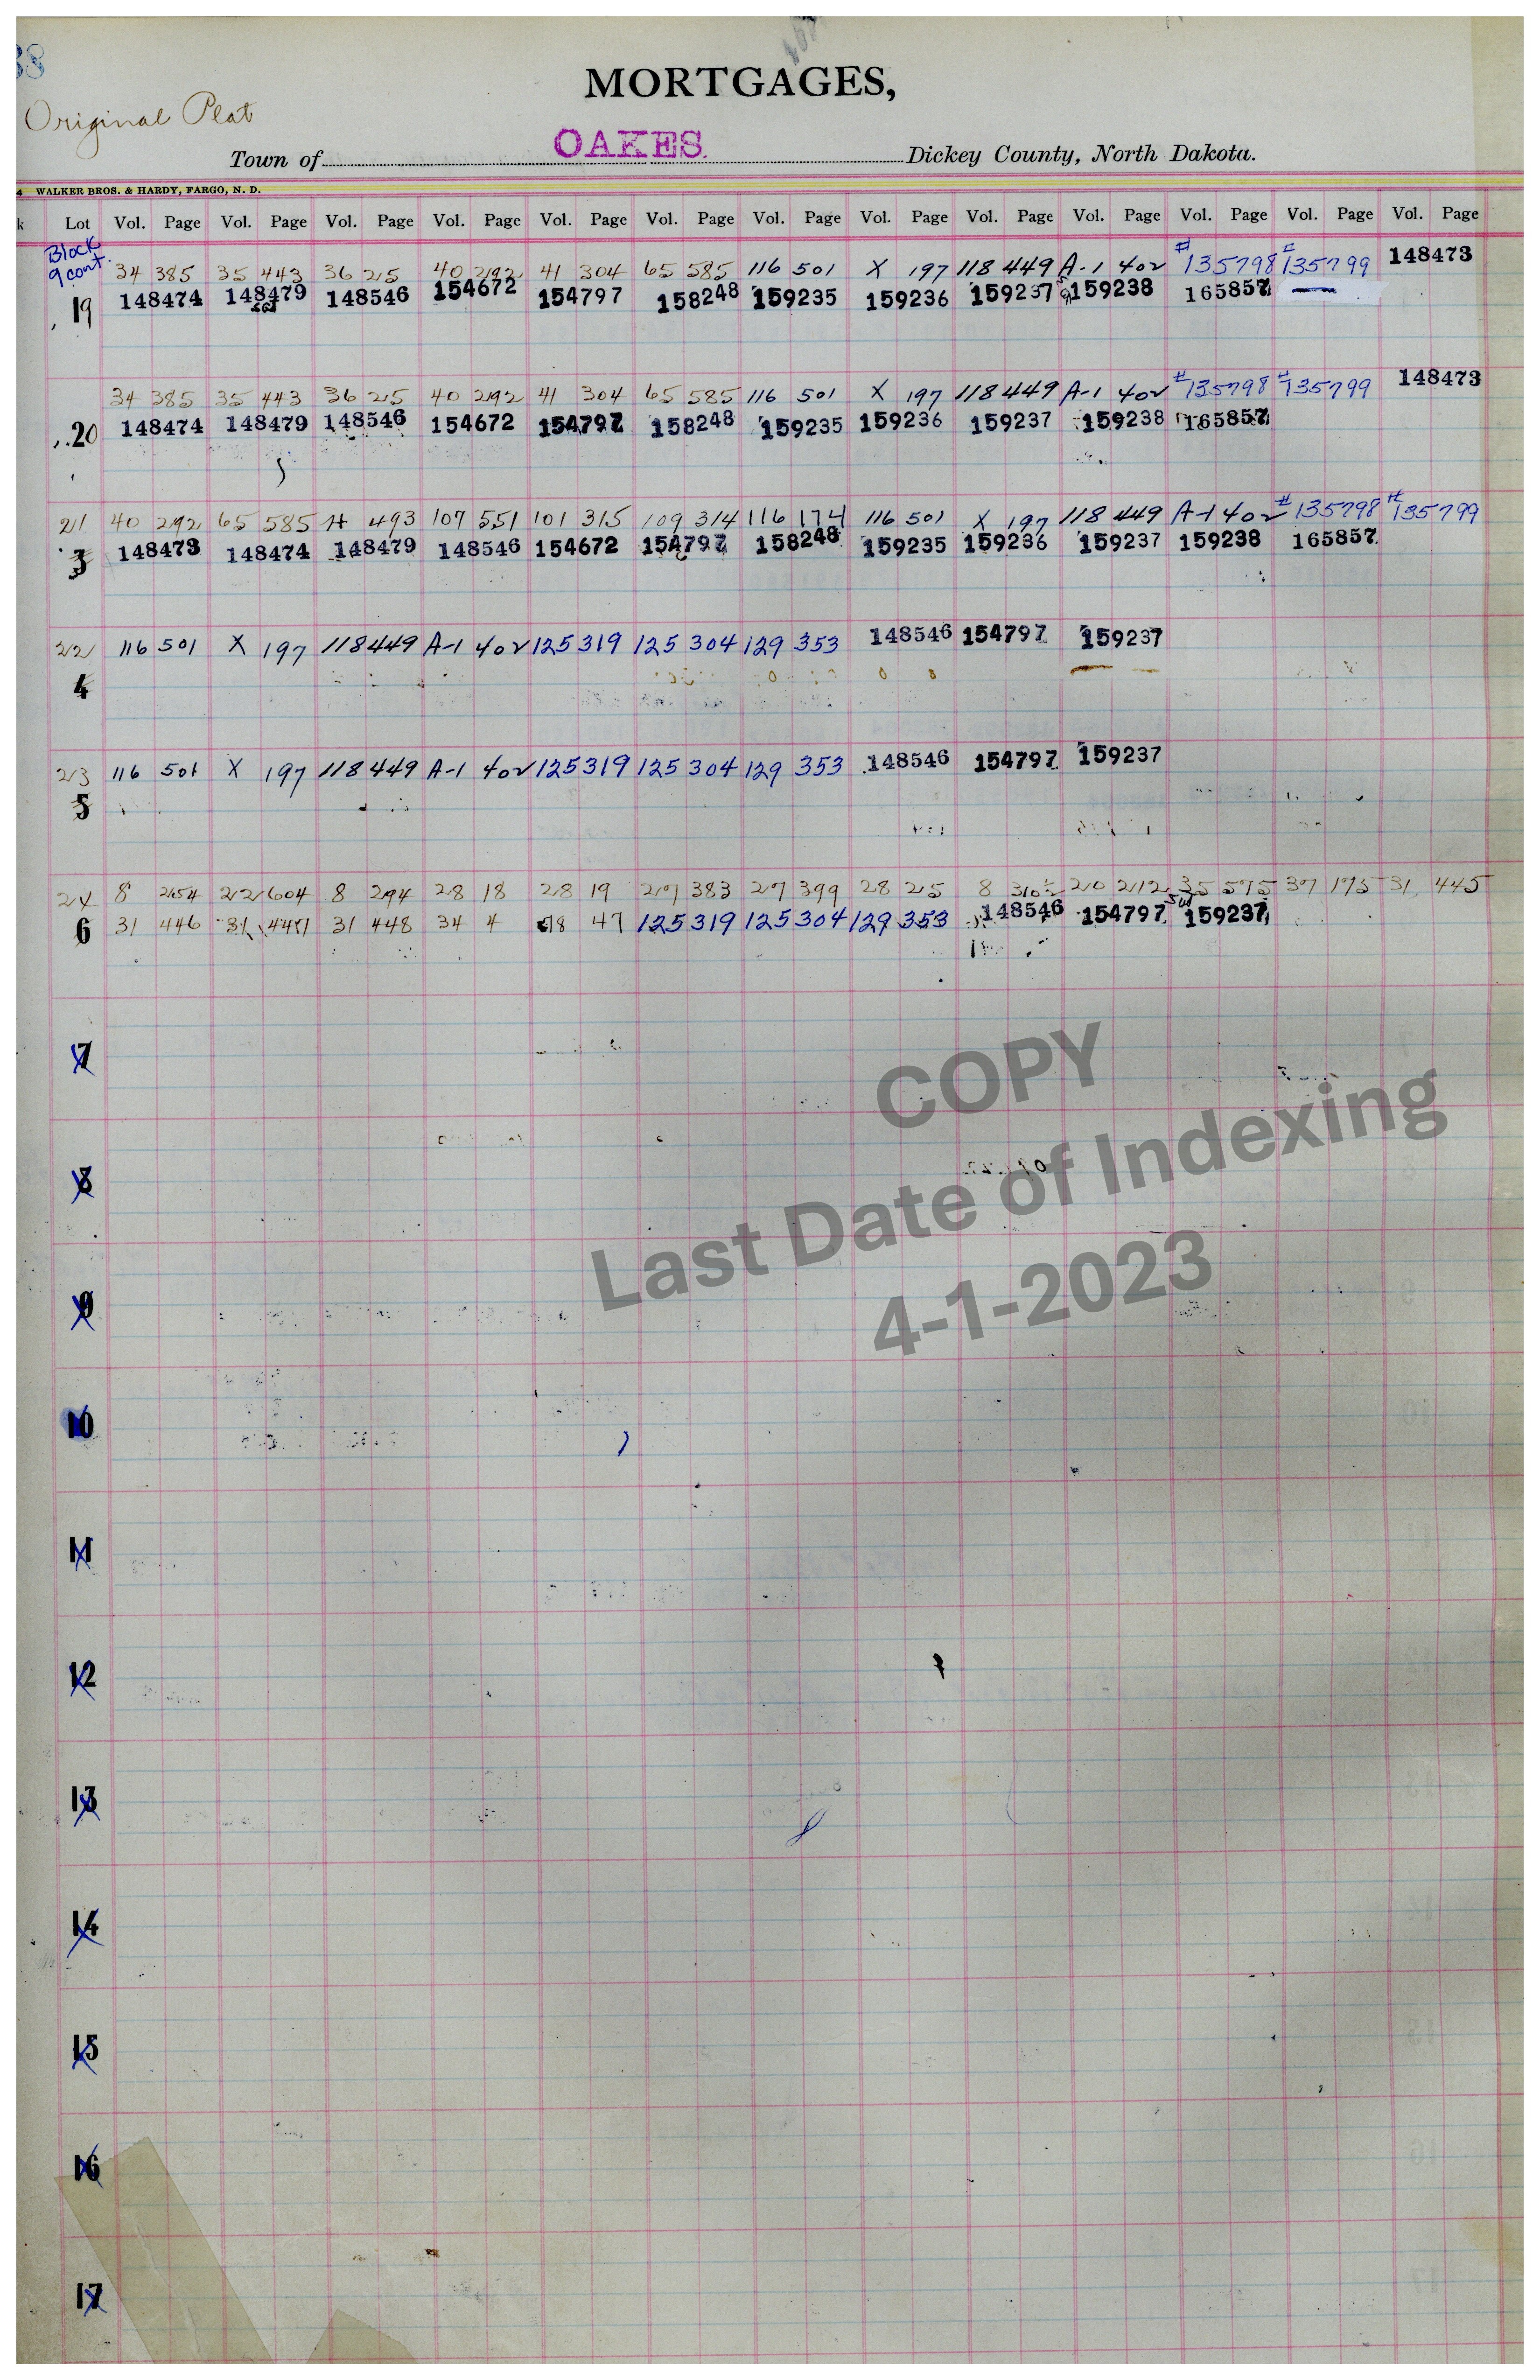 38
MORTGAGES,
Original Plat
Town of OAKES. Dickey County, North Dakota.
4 WALKER BROS. & HARDY, FARGO, N. D.
k Lot Vol. Page Vol. Page Vol. Page Vol. Page Vol. Page Vol. Page Vol. Page Vol. Page Vol. Page Vol. Page Vol. Page Vol. Page Vol. Page
Block
9 cont. 34 385 35 443 36 215 40 292 41 304 65 585 116 501 X 197 118 449 A-1 402 #135798 #135799 148473
19 148474 148479 148546 154672 154797 158248 159235 159236 159237 159238 165857
34 385 35 443 36 215 40 292 41 304 65 585 116 501 X 197 118 449 A-1 402 #135798 #135799 148473
20 148474 148479 148546 154672 154797 158248 159235 159236 159237 159238 165857
21 40 292 65 585 H 493 107 551 101 315 109 314 116 174 116 501 X 197 118 449 A-1 402 #135798 #135799
3 148473 148474 148479 148546 154672 154797 158248 159235 159236 159237 159238 165857
22 116 501 X 197 118 449 A-1 402 125 319 125 304 129 353 148546 154797 159237
4
23 116 501 X 197 118 449 A-1 402 125 319 125 304 129 353 148546 154797 159237
5
24 8 254 22 604 8 294 28 18 28 19 27 383 27 399 28 25 8 310 20 212 35 575 37 175 31 445
6 31 446 31 447 31 448 34 4 78 47 125 319 125 304 129 353 148546 154797 159237
7
COPY
8
Last Date of Indexing
9
4-1-2023
10
11
12
13
14
15
16
17